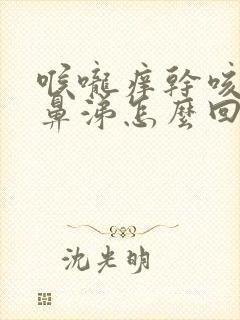 喉嚨痒幹咳
鼻涕怎麼回
沈光明